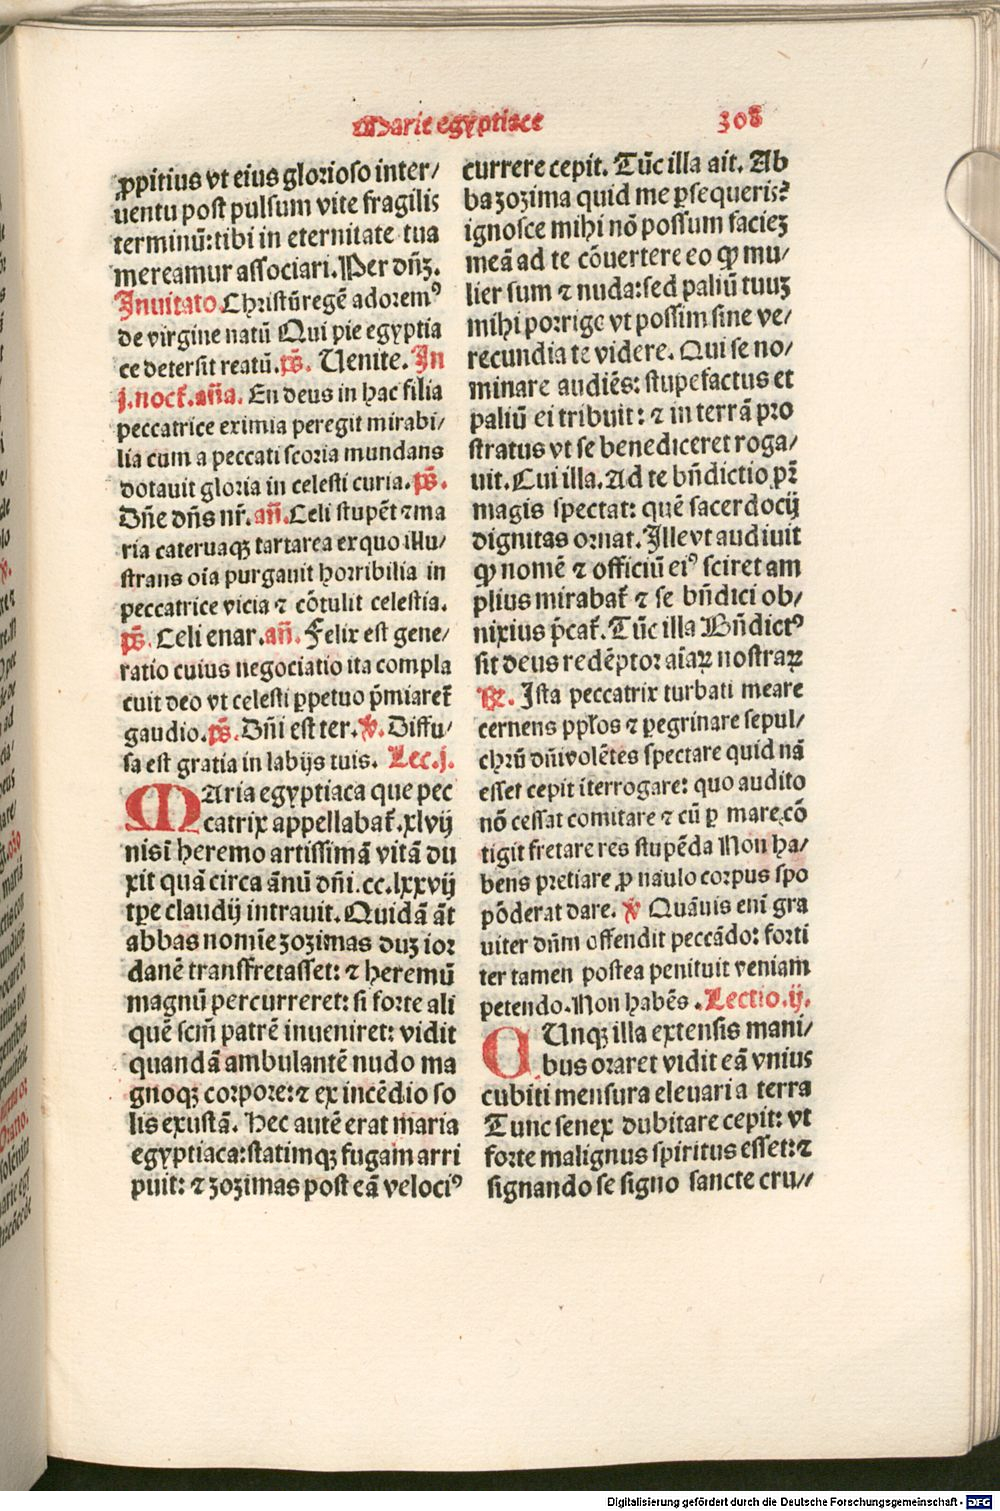 Marie egyptiace 308
ꝓpitius vt eius glorioso inter/
uentu post pulsum vite fragilis
terminū: tibi in eternitate tua
mereamur associari. Per dñꝫ.
Inuitato. Christū regē adoremꝰ
de virgine natū Qui pie egyptia
ce detersit reatū. ps̄. Uenite. In
j. nocẜ. aña. En deus in hac filia
peccatrice eximia peregit mirabi/
lia cum a peccati scoria mundans
dotauit gloria in celesti curia. ps̄.
Dñe dñs nr̄. añ. Celi stupēt ⁊ ma
ria cateruaqꝫ tartarea ex quo illu/
strans oīa purgauit horribilia in
peccatrice vicia ⁊ cōtulit celestia.
ps̄. Celi enar. añ. Felix est gene/
ratio cuius negociatio ita compla
cuit deo vt celesti ꝑpetuo p̄miareẜ
gaudio. ps̄. Dñi est ter. ℣. Diffu/
sa est gratia in labijs tuis. Lec. j.
MAria egyptiaca que pec
catrix appellabaẜ. xlvij
nisī heremo artissimā vitā du
xit quā circa ānū dñi. cc. lxxvij
tꝑe claudij intrauit. Quidā āt
abbas nomīe zozimas duꝫ ior
danē transfretasset: ⁊ heremū
magnū percurreret: si forte ali
quē scm̄ patrē inueniret: vidit
quandā ambulantē nudo ma
gnoqꝫ corpore: ⁊ ex incēdio so
lis exustā. Hec autē erat maria
egyptiaca: statimqꝫ fugam arri
puit: ⁊ zozimas post eā velociꝰ
currere cepit. Tūc illa ait. Ab
ba zozima quid me ꝑsequeris?
ignosce mihi nō possum facieꝫ
meā ad te cōuertere eo ꝙ mu/
lier sum ⁊ nuda: sed paliū tuuꝫ
mihi porrige vt possim sine ve/
recundia te videre. Qui se no/
minare audiēs: stupefactus et
paliū ei tribuit: ⁊ in terrā pro
stratus vt se benediceret roga/
uit. Cui illa. Ad te bn̄dictio pr̄
magis spectat: quē sacerdocij
dignitas ornat. Ille vt audiuit
ꝙ nomē ⁊ officiū eiꝰ sciret am
plius mirabaẜ ⁊ se bn̄dici ob/
nixius p̄caẜ. Tūc illa Bn̄dictꝰ
sit deus redēptor aīaꝝ nostraꝝ
℟. Ista peccatrix turbati meare
cernens pp̄los ⁊ ꝑegrinare sepul/
chrū dñi volētes spectare quid nā
esset cepit īterrogare: quo audito
nō cessat comitare ⁊ cū ꝑ mare cō
tigit fretare res stupēda Non ha/
bens pretiare ꝓ naulo corpus spo
pōderat dare. ℣ Quāuis enī gra
uiter dn̄m offendit peccādo: forti
ter tamen postea penituit veniam
petendo. Non habēs. Lectio. ij.
CUnqꝫ illa extensis mani/
bus oraret vidit eā vnius
cubiti mensura eleuari a terra
Tunc senex dubitare cepit: vt
forte malignus spiritus esset: ⁊
signando se signo sancte cru//
Digitalisierung gefördert durch die Deutsche Forschungsgemeinschaft - DFG